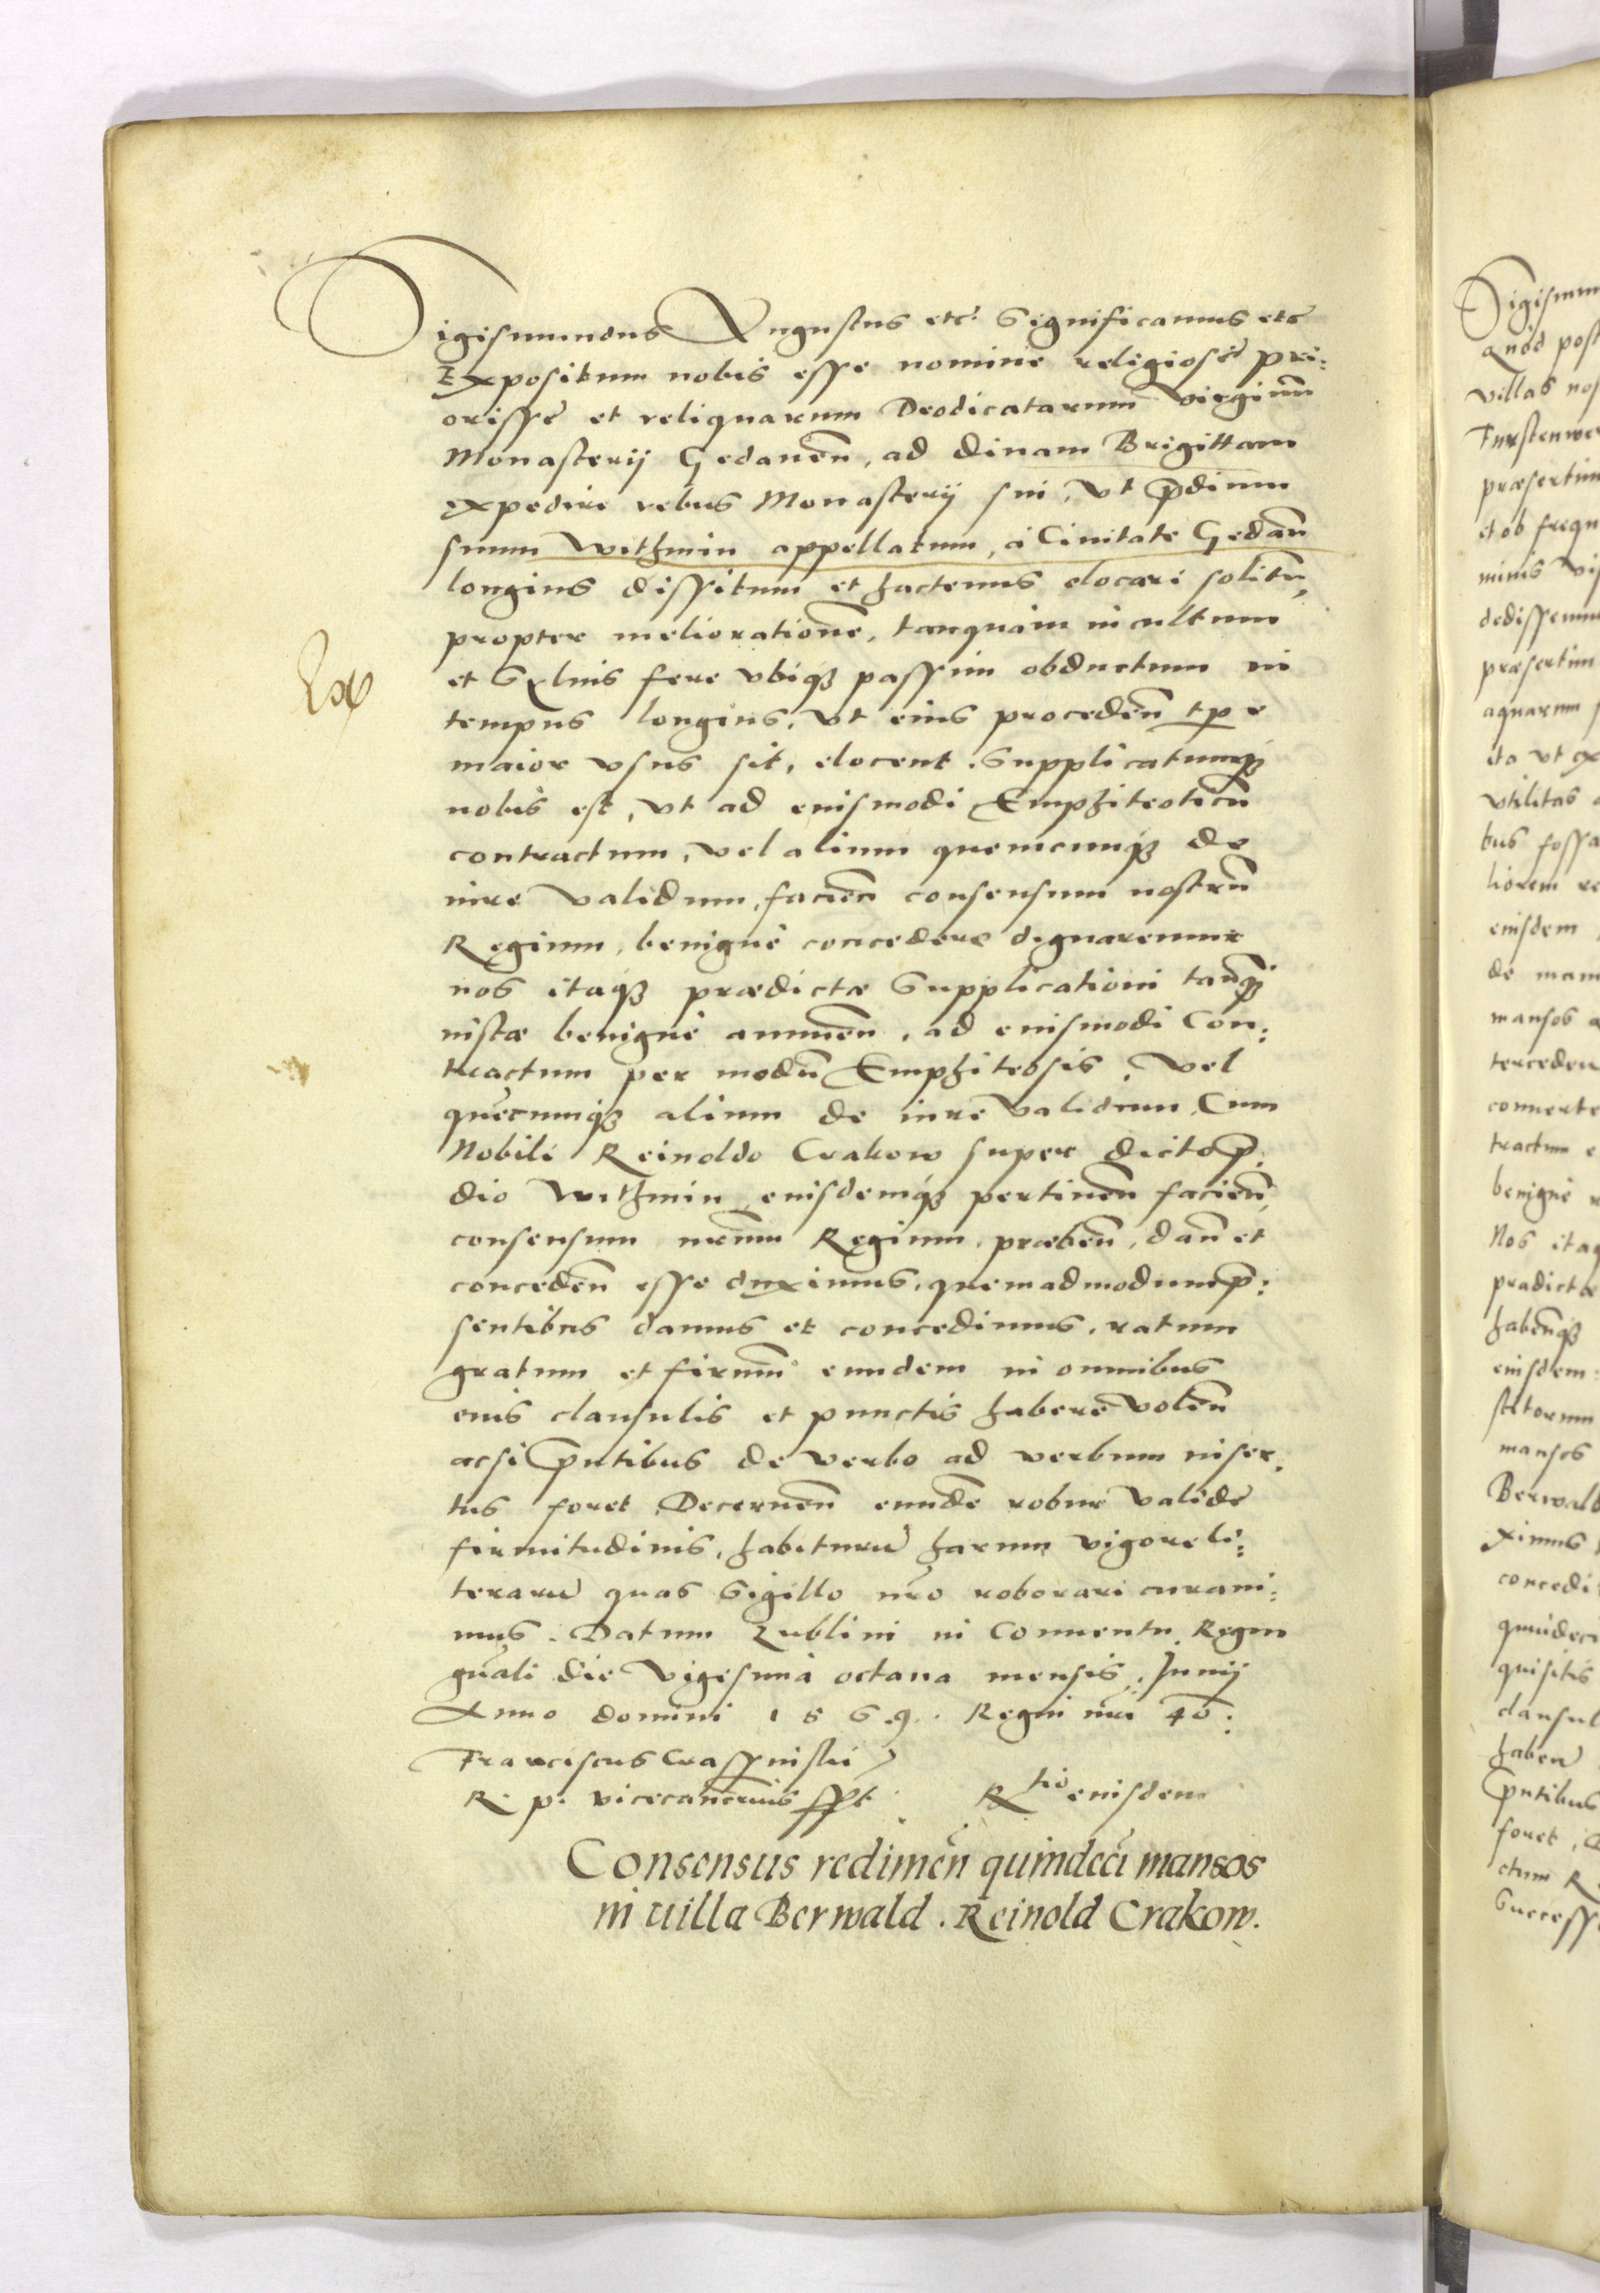 Sigismundus Augustus etc. Significamus etc
Expositum nobis esse nomine religiosę pri:
orissę et reliquarum Deodicatarum virginū
Monasterij Gedanen̄, ad diuam Brigittam
expedire rebus Monasterij sui, vt p̄dium
suum Withmin appellatum, à Ciuitate Gedan̄
longius dissitum et hactenus elocari solitū,
propter melioratione, tanquam incultum
et syluis fere vbiq3 passim obductum in
tempus longius, vt eius proceden̄ tp̄e
maior vsus sit, elocent. Supplicatumq3
nobis est, vt ad eiusmodi Emphiteoticū
contractum, vel alium quemcumq3 de
iure validum, facien̄ consensum nostrū
Regium, benignè concedere dignaremur
nos itaq3 prædictæ Supplicationi tanq̄3
iustæ benignè annuen̄, ad eiusmodi Con:
tractum per modū Emphiteosis, vel
quēcumq3 alium de iure validum, Cum
Nobili Reinoldo Crakow super dicto p̄:
dio Withmin, eiusdemq3 pertinen̄ facien̄,
consensum nr̄um Regium, præben̄, dan̄ et
conceden̄ esse duximus, quemadmodum p̄:
sentibus damus et concedimus, ratum
gratum et firmū eundem in omnibus
eius clausulis et punctis habere volen̄
acsi p̄ntibus de verbo ad verbum inser:
tus foret, Decernen̄ eundē robur validę
firmitudinis, habiturū harum vigore li:
terarū quas Sigillo nr̄o roborari curaui:
mus. Datum Lublini in Conuentu Regni
gn̄ali die vigesima octaua mensis Junij
Anno domini 1569. Regni nr̄i 40.
Franciscus Crassinskii
R. p. vicecancr̄ius sspt Rtio eiusdem
Consensus redimen̄ quindeci mansos
in uilla Berwald. Reinold Crakow.
Sigismun
Quod post
villas nos
Furstenwer
præsertim
et ob frequ
minis vis
dedissemu
præsertim
aquarum
ita vt ex
vtilitas
bus fossa
liorem re
eiusdem
de man
mansos
terceden
conuerte
tractum e
benignè
Nos itaq
prædictæ
haben̄q3
eiusdem:
mansos
Berwald
ximus
concedi
quindeci
quisitis
clausul
haben
p̄ntibus
foret, D
ctum R
Successo